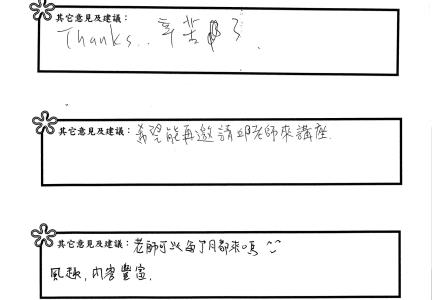 其它意見及建議：
Thanks.. 辛苦了.
其它意見及建議：希望能再邀請邱老師來講座.
其它意見及建議：老師可以每个月都來嗎 ^^
風趣，內容豐富.